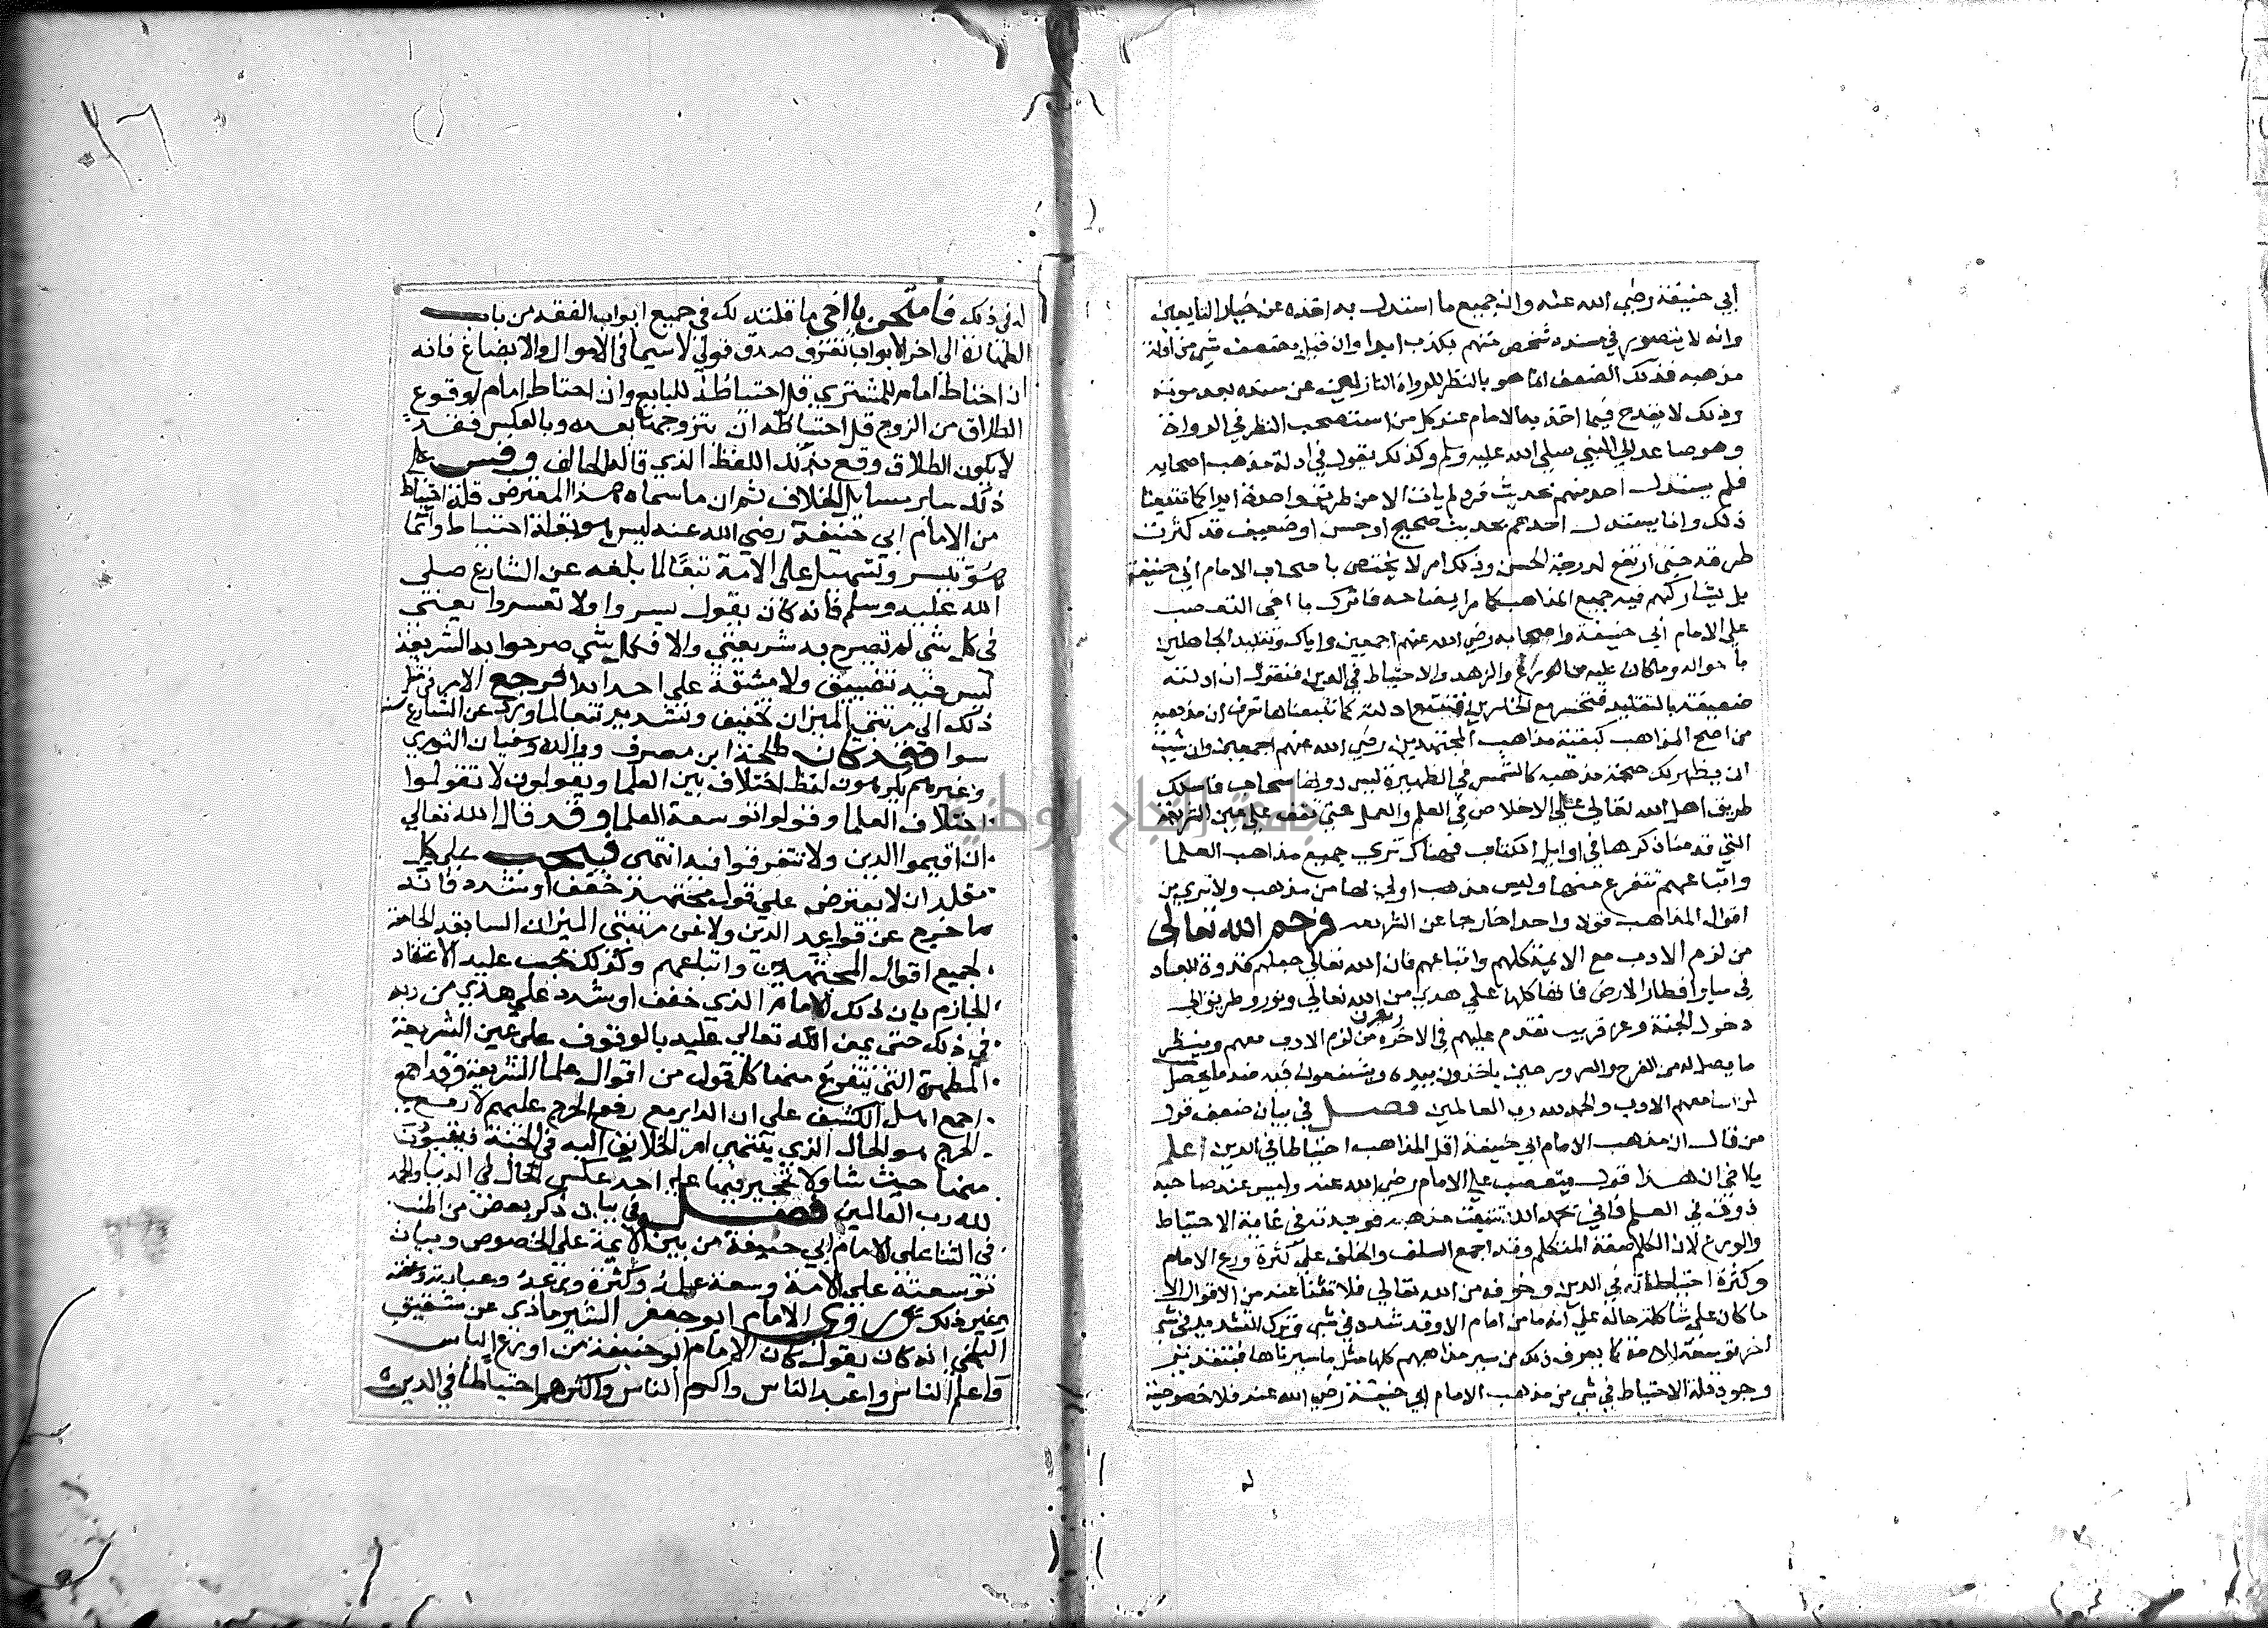 أبي حنيفة رضي الله عنه وان جميع ما استدل به اخذه عن خيار التابعين
وانه لا يتصور في سنده شخص متهم بكذب ابدا وان قيل بضعف شي من ادلة
مذهبه فذلك الضعف انما هو بالنظر للرواة النازلين عن سنده بعد موته
وذلك لا يقدح فيما اخذ به الامام عند كل من استصحب النظر في الرواة
وهو صاعد الي النبي صلي الله عليه وسلم وكذلك نقول في ادلة مذهب اصحابه
فلم يستدل احد منهم بحديث فرد لم يات الا من طريق واحدة ابدا كما تتبعنا
ذلك وانما يستدل احدهم بحديث صحيح او حسن او ضعيف قد كثرت
طرقه حتي ارتفع لدرجة الحسن وذلك امر لا يختص باصحاب الامام ابي حنيفة
بل يشاركهم فيه جميع المذاهب كما مر ايضاحه فاترك يا اخي التعصب
علي الامام ابي حنيفة واصحابه رضي الله عنهم اجمعين واياك وتقليد الجاهلين
باحواله وما كان عليه من الورع والزهد والاحتياط في الدين فتقول ان ادلته
ضعيفة بالتقليد فتحشر مع الخاسرين فتتبع ادلته كما تتبعناها تعرف ان مذهبه
من اصح المذاهب كبقية مذاهب المجتهدين رضي الله عنهم اجمعين وان شيت
ان يظهر لك صحة مذهبه كالشمس في الظهيرة ليس دونها سحاب فاسلك
طريق اهل الله تعالي علي الاخلاص في العلم والعمل حتي تقف علي عين الشريعة
التي قدمنا ذكرها في اوايل الكتاب فهناك تري جميع مذاهب العلما
واتباعهم تتفرع منها وليس مذهب اولي بها من مذهب ولا تري من
اقوال المذاهب قولا واحدا خارجا عن الشريعة فرحم الله تعالي
من لزم الادب مع الايمة كلهم واتباعهم فان الله تعالي جعلهم قدوة للعباد
في ساير اقطار الارض فانها كلها علي هدي من الله تعالي ونور وطريق الي
دخول الجنة وعن قريب يقدم عليهم في الاخرة من لزم الادب معهم وينظر
ما يحصل له من الفرح والسرور حين ياخذون بيده ويشفعون فيه ضد ما يحصل
لمن اسا معهم الادب والحمد لله رب العالمين فصل في بيان ضعف قول
من قال ان مذهب الامام ابي حنيفة اقل المذاهب احتياطا في الدين اعلم
يا اخي ان هذا قول متعصب علي الامام رضي الله عنه وليس عند صاحبه
ذوق في العلم فاني بحمد الله تتبعت مذهبه فوجدته في غاية الاحتياط
والورع لان الكلام صفة المتكلم وقد اجمع السلف والخلف علي كثرة ورع الامام
وكثرة احتياطاته في الدين وخوفه من الله تعالي فلا ينشا عنه من الاقوال الا
ما كان علي شاكلة حاله علي انه ما من امام الا وقد شدد في شي وترك التشديد في شي
اخر توسعة للامة كما يعرف ذلك من سبر مذاهبهم كلها مثل ما سبرناها فبتقدير
وجود قلة الاحتياط في شي من مذهب الامام ابي حنيفة رضي الله عنه فلا خصوصية
له في ذلك فامتحن يا اخي ما قلته لك في جميع ابواب الفقه من باب
الطهارة الي اخر الابواب تعرف صدق قولي لا سيما في الاموال والابضاع فانه
ان احتاط امام للمشتري قل احتياطه للبايع وان احتاط امام لوقوع
الطلاق من الزوج قل احتياطه ان يتزوجها بعده وبالعكس فقد
لا يكون الطلاق وقع بذلك اللفظ الذي قاله الحالف وقس علي
ذلك ساير مسايل الخلاف ثم ان ما سماه هذا المعترض قلة احتياط
من الامام ابي حنيفة رضي الله عنه ليس هو بقلة احتياط وانما
هو تيسير وتسهيل علي الامة تبعا لما بلغه عن الشارع صلي
الله عليه وسلم فانه كان يقول يسروا ولا تعسروا يعني
في كل شي لم تصرح به شريعتي والا فكل شي صرحوا به الشريعة
ليس فيه تضييق ولا مشقة علي احد ابدا فرجع الامر في مثل
ذلك الي مرتبتي الميزان تخفيف وتشديد تبعا لما ورد عن الشارع
سوا فقد كان طلحة ابن مصرف ووالده وسفيان الثوري
وغيرهم يكرهون لفظ اختلاف بين العلما ويقولون لا تقولوا
اختلاف العلما وقولوا توسعة العلما وقد قال الله تعالي
ان اقيموا الدين ولا تتفرقوا فيه انتهي فيجب علي كل
مقلد ان لا يعترض علي قول مجتهد خفف او شدد فانه
ما خرج عن قواعد الدين ولا عن مرتبتي الميزان السابقة الحاصرة
لجميع اقوال المجتهدين واتباعهم وكذلك يجب عليه الاعتقاد
الجازم بان ذلك الامام الذي خفف او شدد علي هدي من ربه
في ذلك حتي يمن الله تعالي عليه بالوقوف علي عين الشريعة
المطهرة التي يتفرع منها كل قول من اقوال علما الشريعة وقد
اجمع اهل الكشف علي ان الداير مع رفع الحرج عليهم لا رفع
الحرج هو الحال الذي ينتهي امر الخلايق اليه في الجنة فيتبوون
منها حيث شاوا لا تحجير فيها علي احد عكس الحال في الدنيا والحمد
لله رب العالمين فصل في بيان ذكر بعض من اطنب
في الثنا علي الامام ابي حنيفة من بين الايمة علي الخصوص وبيان
توسعته علي الامة وسعة علمه وكثرة ورعه وعبادته وعفته
وغير ذلك روي الامام ابو جعفر الشيرماذي عن شقيق
البلخي انه كان يقول كان الامام ابو حنيفة من اورع الناس
واعلم الناس واعبد الناس واكرم الناس واكثرهم احتياطا في الدين
جامعة النجاح الوطنية